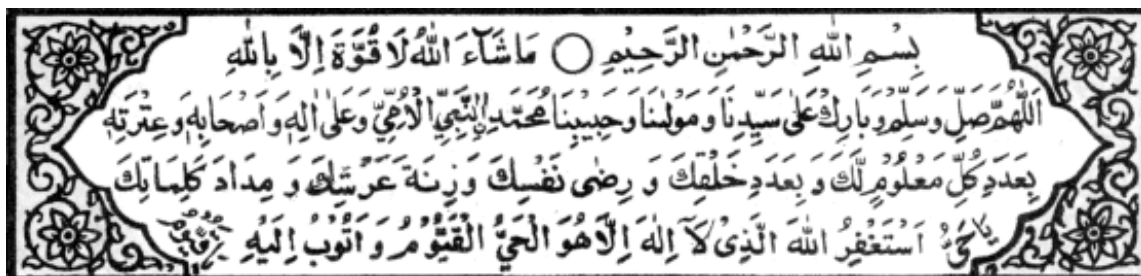 بِسْمِ اللهِ الرَّحْمٰنِ الرَّحِيْمِ ○ مَا شَآءَ اللهُ لَا قُوَّةَ اِلَّا بِاللهِ
اَللّٰهُمَّ صَلِّ وَسَلِّمْ وَبَارِكْ عَلٰى سَيِّدِنَا وَمَوْلٰىنَا وَحَبِيْبِنَا مُحَمَّدِ ۨالنَّبِيِّ الْاُمِّيِّ وَعَلٰى اٰلِهٖ وَاَصْحَابِهٖ وَعِتْرَتِهٖ
بِعَدَدِ كُلِّ مَعْلُوْمٍ لَّكَ وَ بِعَدَدِ خَلْقِكَ وَ رِضٰى نَفْسِكَ وَزِنَةِ عَرْشِكَ وَ مِدَادَ كَلِمَاتِكَ
اَسْتَغْفِرُ اللهَ الَّذِىْ لَآ اِلٰهَ اِلَّا هُوَ الْحَيُّ الْقَيُّوْمُ وَ اَتُوْبُ اِلَيْهِ
يَا حَيُّ
يَا قَيُّوْمُ